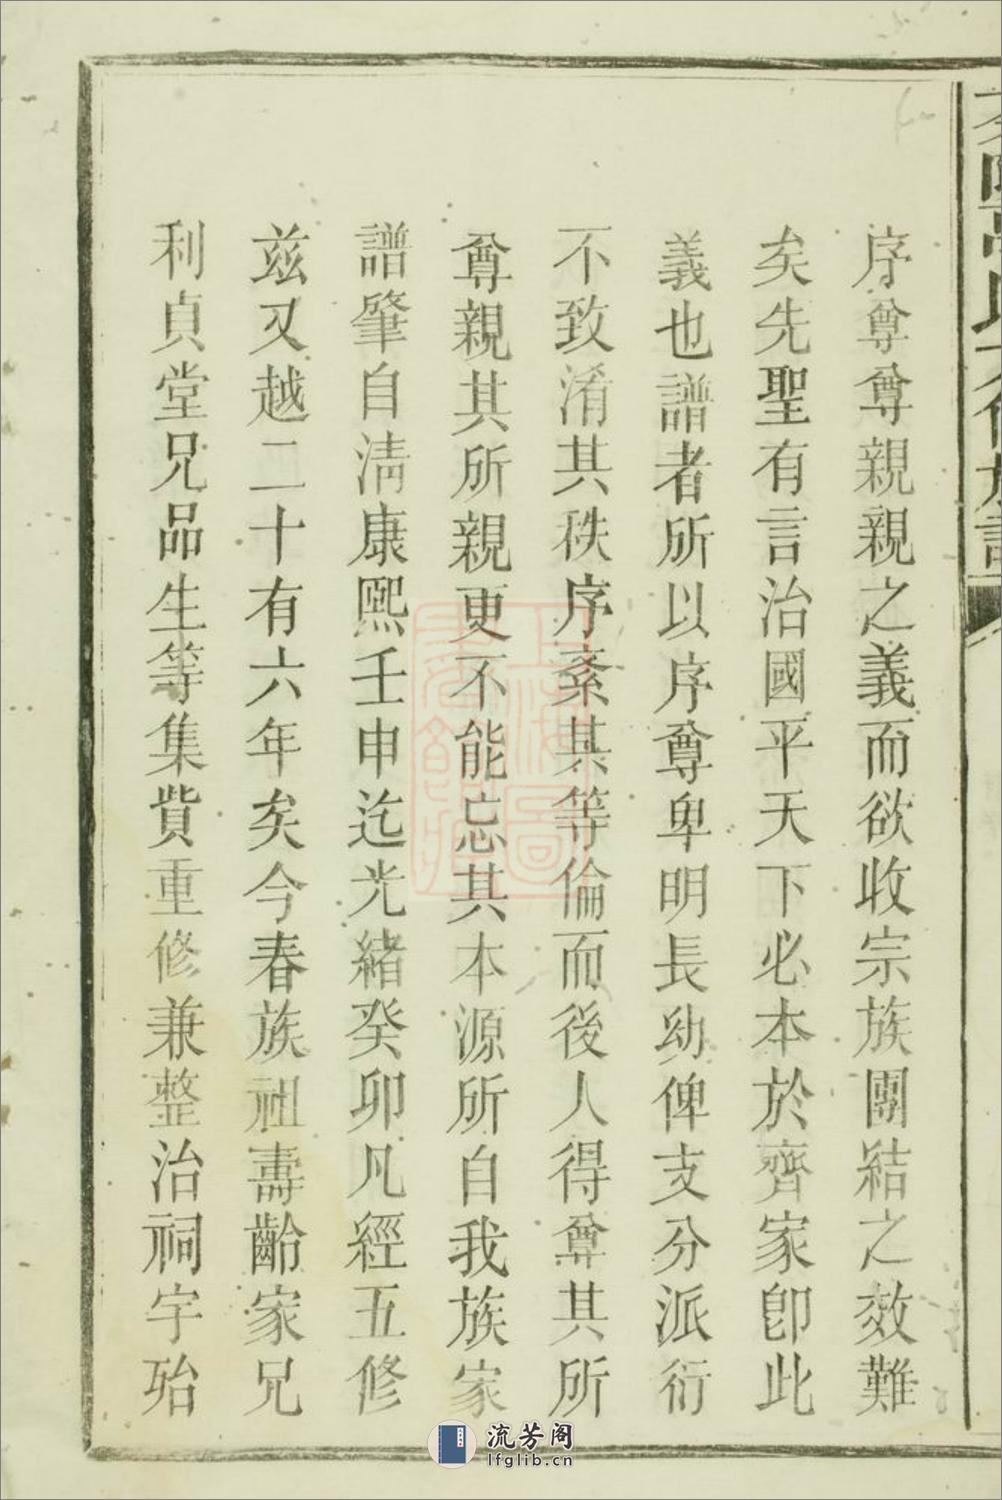 序尊尊親親之義而欲收宗族團結之效難
矣先聖有言治國平天下必本於齊家卽此
義也譜者所以序尊卑明長幼俾支分派衍
不致淆其秩序紊其等倫而後人得尊其所
尊親其所親更不能忘其本源所自我族家
譜肇自淸康熙壬申迄光緒癸卯凡經五修
兹又越二十有六年矣今春族祖壽齡家兄
利貞堂兄品生等集貲重修兼整治祠宇殆
上海圖書館藏
流芳阁
lfglib.cn